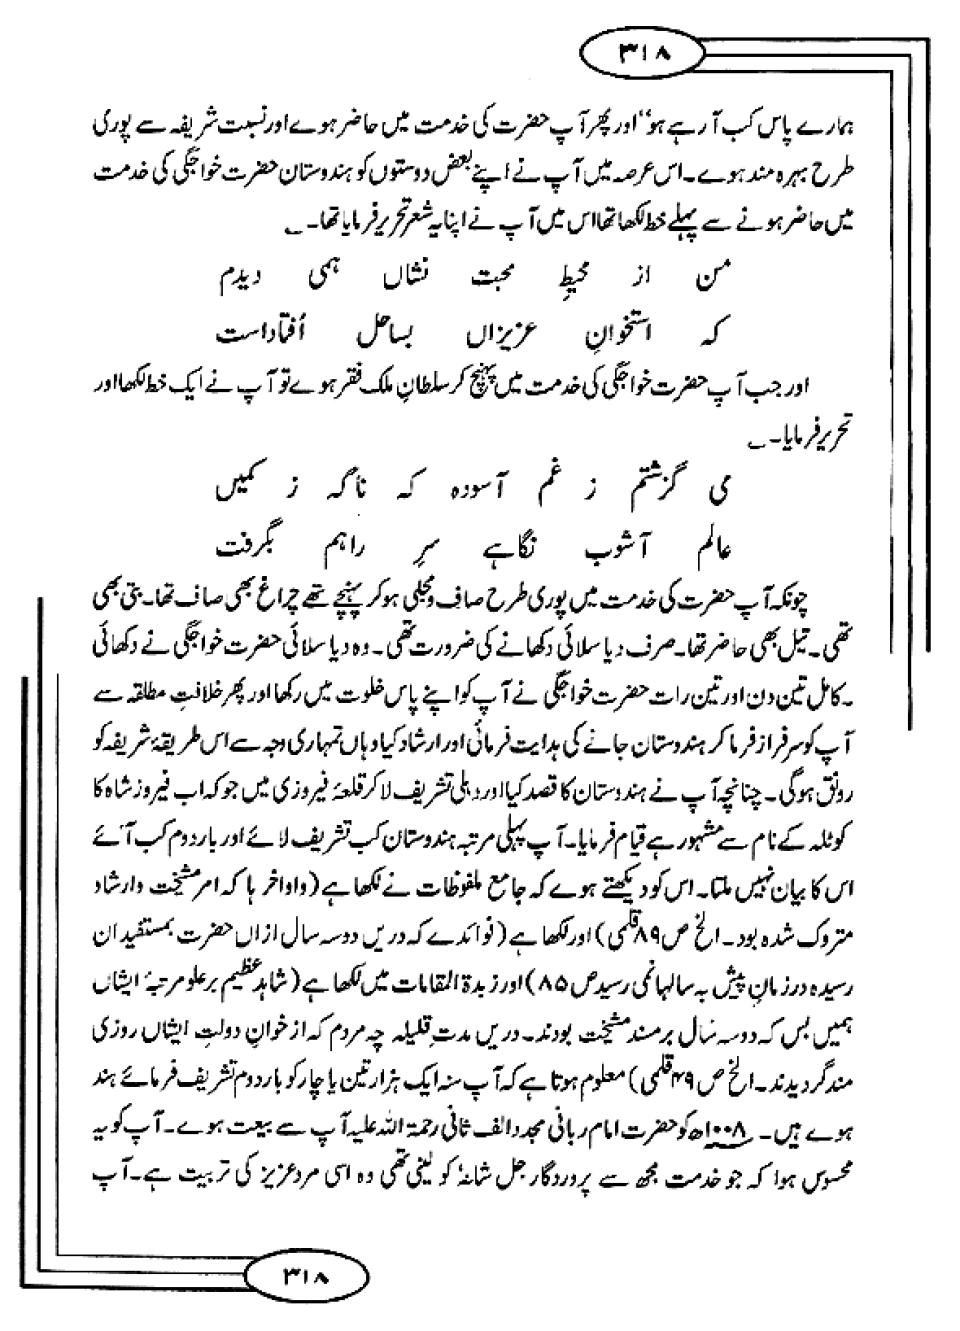 ۳۱۸
ہمارے پاس کب آ رہے ہو" اور پھر آپ حضرت کی خدمت میں حاضر ہوے اور نسبت شریفہ سے پوری
طرح بہرہ مند ہوے۔ اس عرصہ میں آپ نے اپنے بعض دوستوں کو ہندوستان حضرت خواجگی کی خدمت
میں حاضر ہونے سے پہلے خط لکھا تھا اس میں آپ نے اپنا یہ شعر تحریر فرمایا تھا۔ ؎
من از محیطِ محبت نشاں ہمی دیدم
کہ استخوانِ عزیزاں بساحل اُفتاداست
اور جب آپ حضرت خواجگی کی خدمت میں پہنچ کر سلطانِ ملک فقر ہوے تو آپ نے ایک خط لکھا اور
تحریر فرمایا۔ ؎
می گزشتم ز غم آسودہ کہ ناگہ ز کمیں
عالم آشوب نگاہے سرِ راہم بگرفت
چونکہ آپ حضرت کی خدمت میں پوری طرح صاف و مجلی ہو کر پہنچے تھے چراغ بھی صاف تھا۔ بتی بھی
تھی۔ تیل بھی حاضر تھا۔ صرف دیا سلائی دکھانے کی ضرورت تھی۔ وہ دیا سلائی حضرت خواجگی نے دکھائی
۔ کامل تین دن اور تین رات حضرت خواجگی نے آپ کو اپنے پاس خلوت میں رکھا اور پھر خلافتِ مطلقہ سے
آپ کو سرفراز فرما کر ہندوستان جانے کی ہدایت فرمائی اور ارشاد کیا وہاں تمہاری وجہ سے اس طریقۂ شریفہ کو
رونق ہوگی۔ چنانچہ آپ نے ہندوستان کا قصد کیا اور دہلی تشریف لا کر قلعۂ فیروزی میں جو کہ اب فیروز شاہ کا
کوٹلہ کے نام سے مشہور ہے قیام فرمایا۔ آپ پہلی مرتبہ ہندوستان کب تشریف لائے اور بار دوم کب آئے
اس کا بیان نہیں ملتا۔ اس کو دیکھتے ہوے کہ جامع ملفوظات نے لکھا ہے (و اواخر ہا کہ امر مشیخت و ارشاد
متروک شدہ بود۔ الخ ص ۸۹ قلمی) اور لکھا ہے (فوائدے کہ دریں دو سہ سال ازاں حضرت بمستفیدان
رسیدہ در زمانِ پیش بہ سالہا نمی رسید ص ۸۵) اور زبدۃ المقامات میں لکھا ہے (شاہد عظیم بر علو مرتبۂ ایشاں
ہمیں بس کہ دو سہ سال بر مسند مشیخت بودند۔ دریں مدتِ قلیلہ چہ مردم کہ از خوانِ دولتِ ایشاں روزی
مند گردیدند۔ الخ ص ۴۹ قلمی) معلوم ہوتا ہے کہ آپ سنہ ایک ہزار تین یا چار کو بار دوم تشریف فرمائے ہند
ہوے ہیں۔ ۱۰۰۸ھ کو حضرت امام ربانی مجدد الف ثانی رحمۃ اللہ علیہ آپ سے بیعت ہوے۔ آپ کو یہ
محسوس ہوا کہ جو خدمت مجھ سے پروردگار جل شانہٗ کو لینی تھی وہ اسی مرد عزیز کی تربیت ہے۔ آپ
۳۱۸